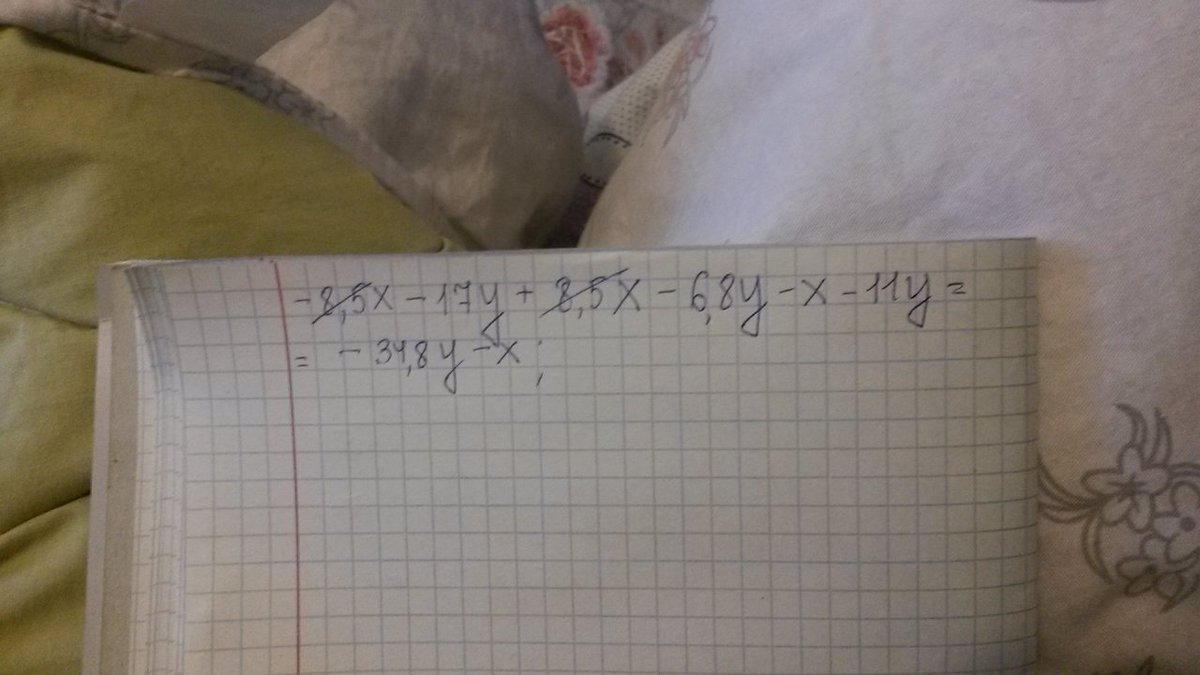 -8,5x - 17y + 8,5x - 6,8y - x - 11y =
= - 34,8y - x;